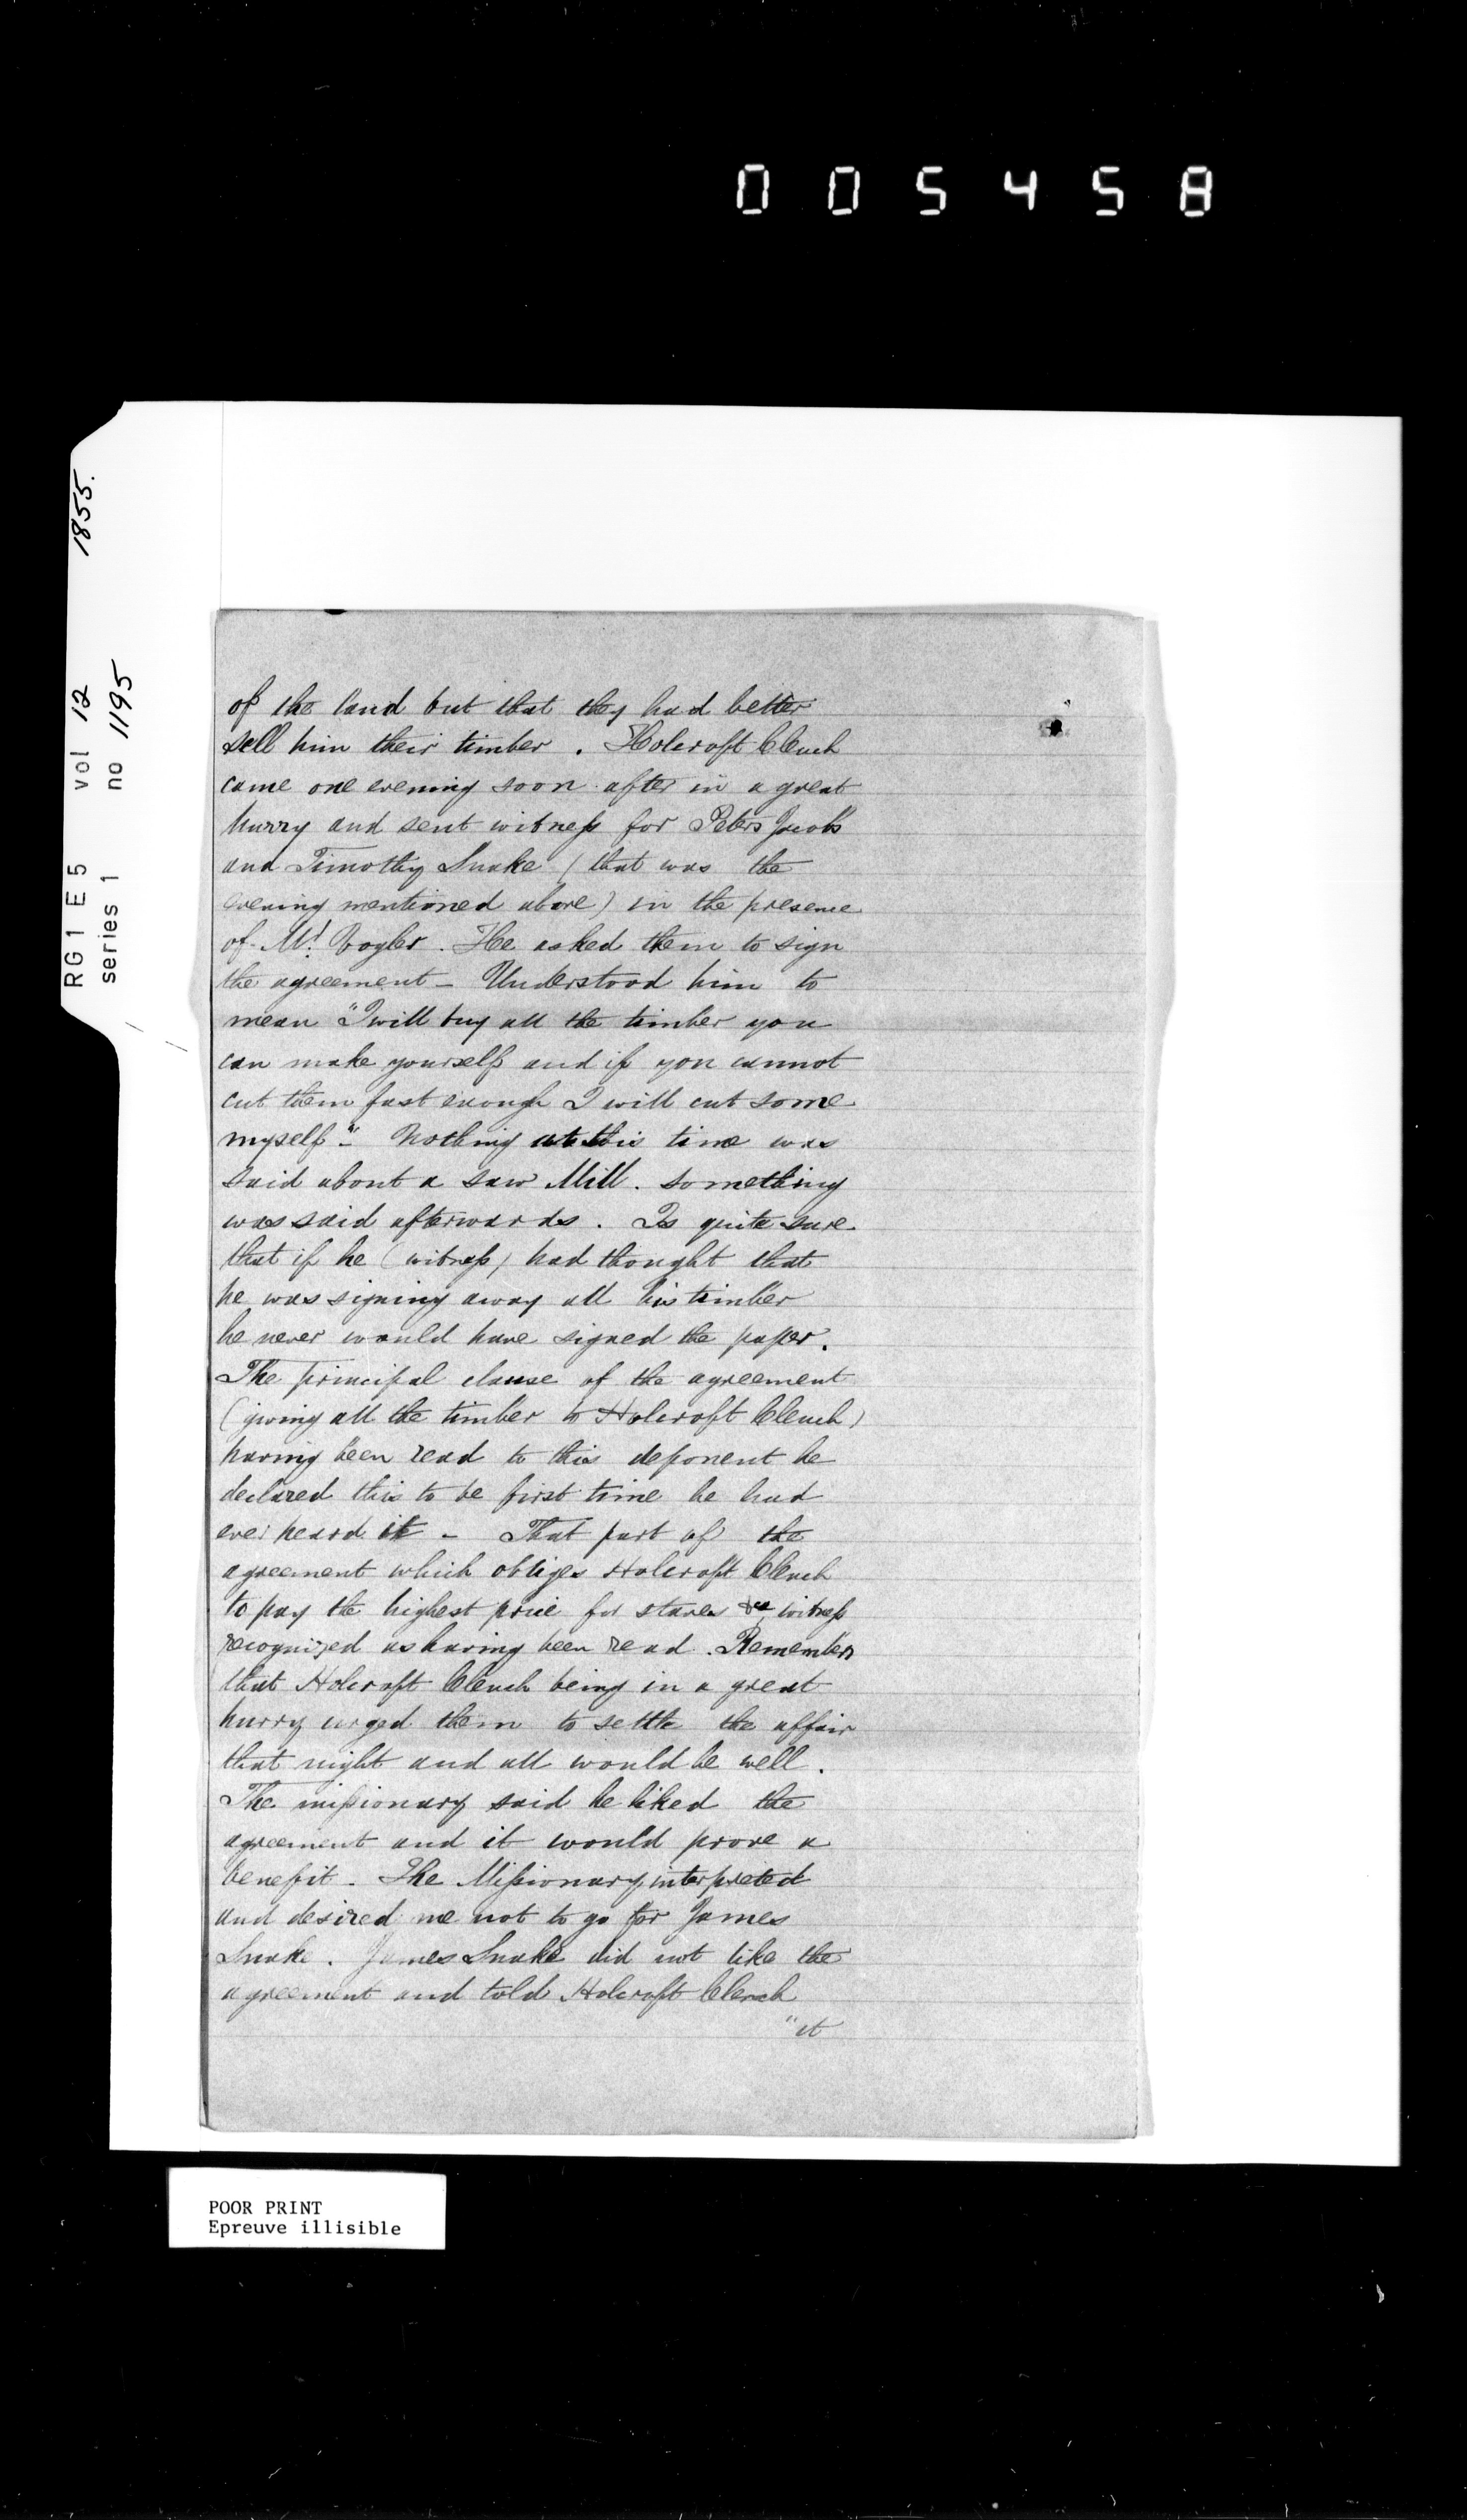 005458
1855.
RG 1 E 5 vol 12
series 1 no 1195
of the land but that they had better
sell him their timber. Holcroft Clench
came one evening soon after in a great
hurry and sent witness for Peters Jacobs
and Timothy Snake (that was the
evening mentioned above) in the presence
of Mr. Vogler. He asked them to sign
the agreement - Understood him to
mean "I will buy all the timber you
can make yourself and if you cannot
cut them fast enough I will cut some
myself" - Nothing at this time was
said about a saw Mill. something
was said afterwards. Is quite sure
that if he (witness) had thought that
he was signing away all his timber
he never would have signed the paper.
The principal clause of the agreement
(giving all the timber to Holcroft Clench)
having been read to this deponent he
declared this to be first time he had
ever heard it - That part of the
agreement which obliges Holcroft Clench
to pay the highest price for staves &c witness
recognized as having been read. Remembers
that Holcroft Clench being in a great
hurry urged them to settle the affair
that night and all would be well.
The missionary said he liked the
agreement and it would prove a
benefit - The Missionary interpreted
and desired me not to go for James
Snake. James Snake did not like the
agreement and told Holcroft Clench
"it
POOR PRINT
Epreuve illisible